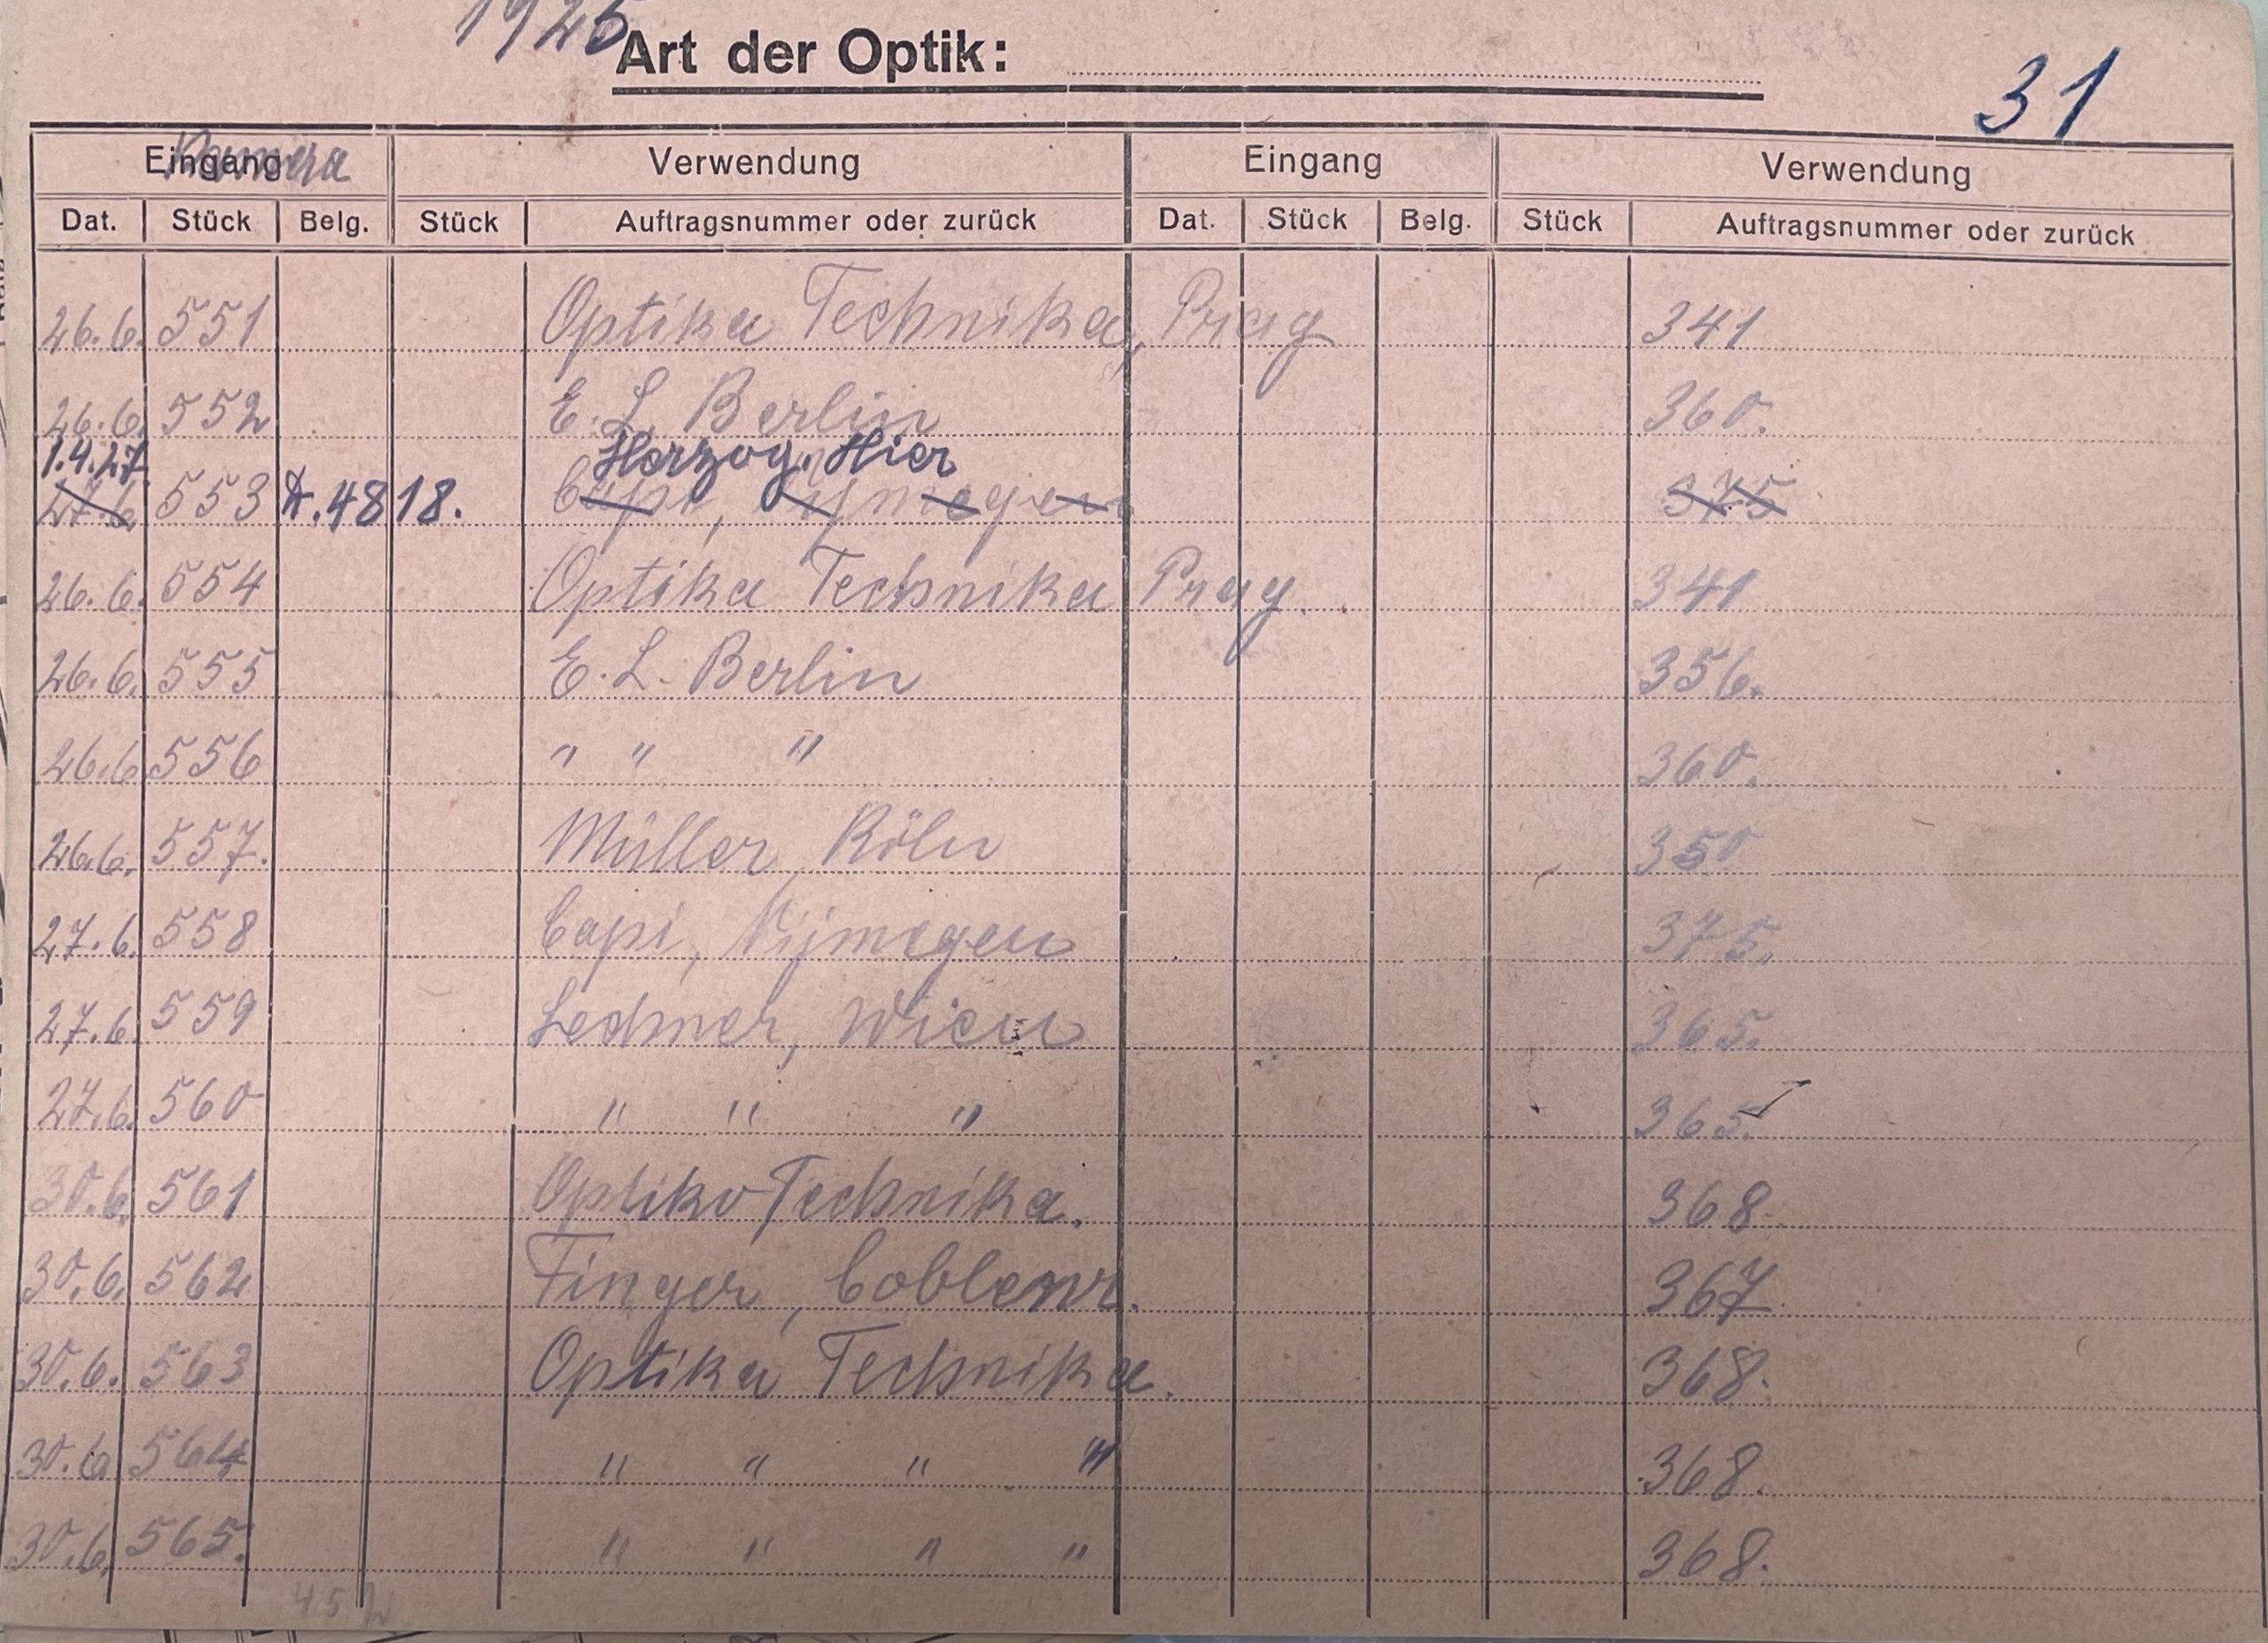 1925
Art der Optik:
31
Kamera
Eingang Verwendung Eingang Verwendung
Dat. Stück Belg. Stück Auftragsnummer oder zurück Dat. Stück Belg. Stück Auftragsnummer oder zurück
26.6. 551 Optika Technika, Prag 341
26.6. 552 E. L. Berlin 360.
1.4.27 Herzog, Hier
27.6. 553 A.4818. Capi, Nijmegen 375
26.6. 554 Optika Technika Prag. 341
26.6. 555 E. L. Berlin 356.
26.6. 556 " " " 360.
26.6. 557. Müller, Köln 350
27.6. 558 Capi, Nijmegen 375.
27.6. 559 Lechner, Wien 365.
27.6. 560 " " " 365.
30.6. 561 Optiko Technika. 368.
30.6. 562 Finger, Coblenz. 367
30.6. 563 Optika Technika. 368.
30.6 564 " " " " 368.
30.6. 565. " " " " 368.